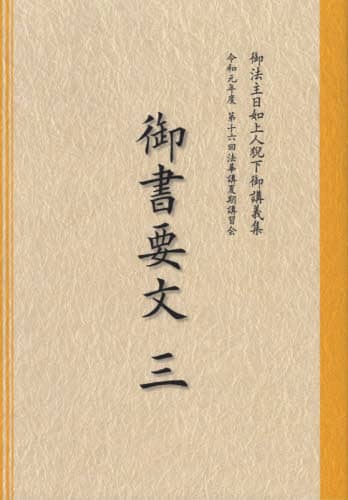 御法主日如上人猊下御講義集
令和元年度 第十六回法華講夏期講習会
御書要文 三